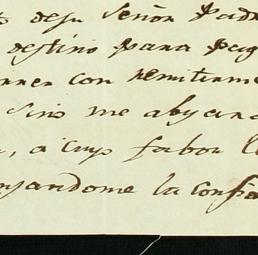 de su Señor Padr
destino para pag
con remitirme
sino me abyan
a cuyo fabor ll
andome la confia